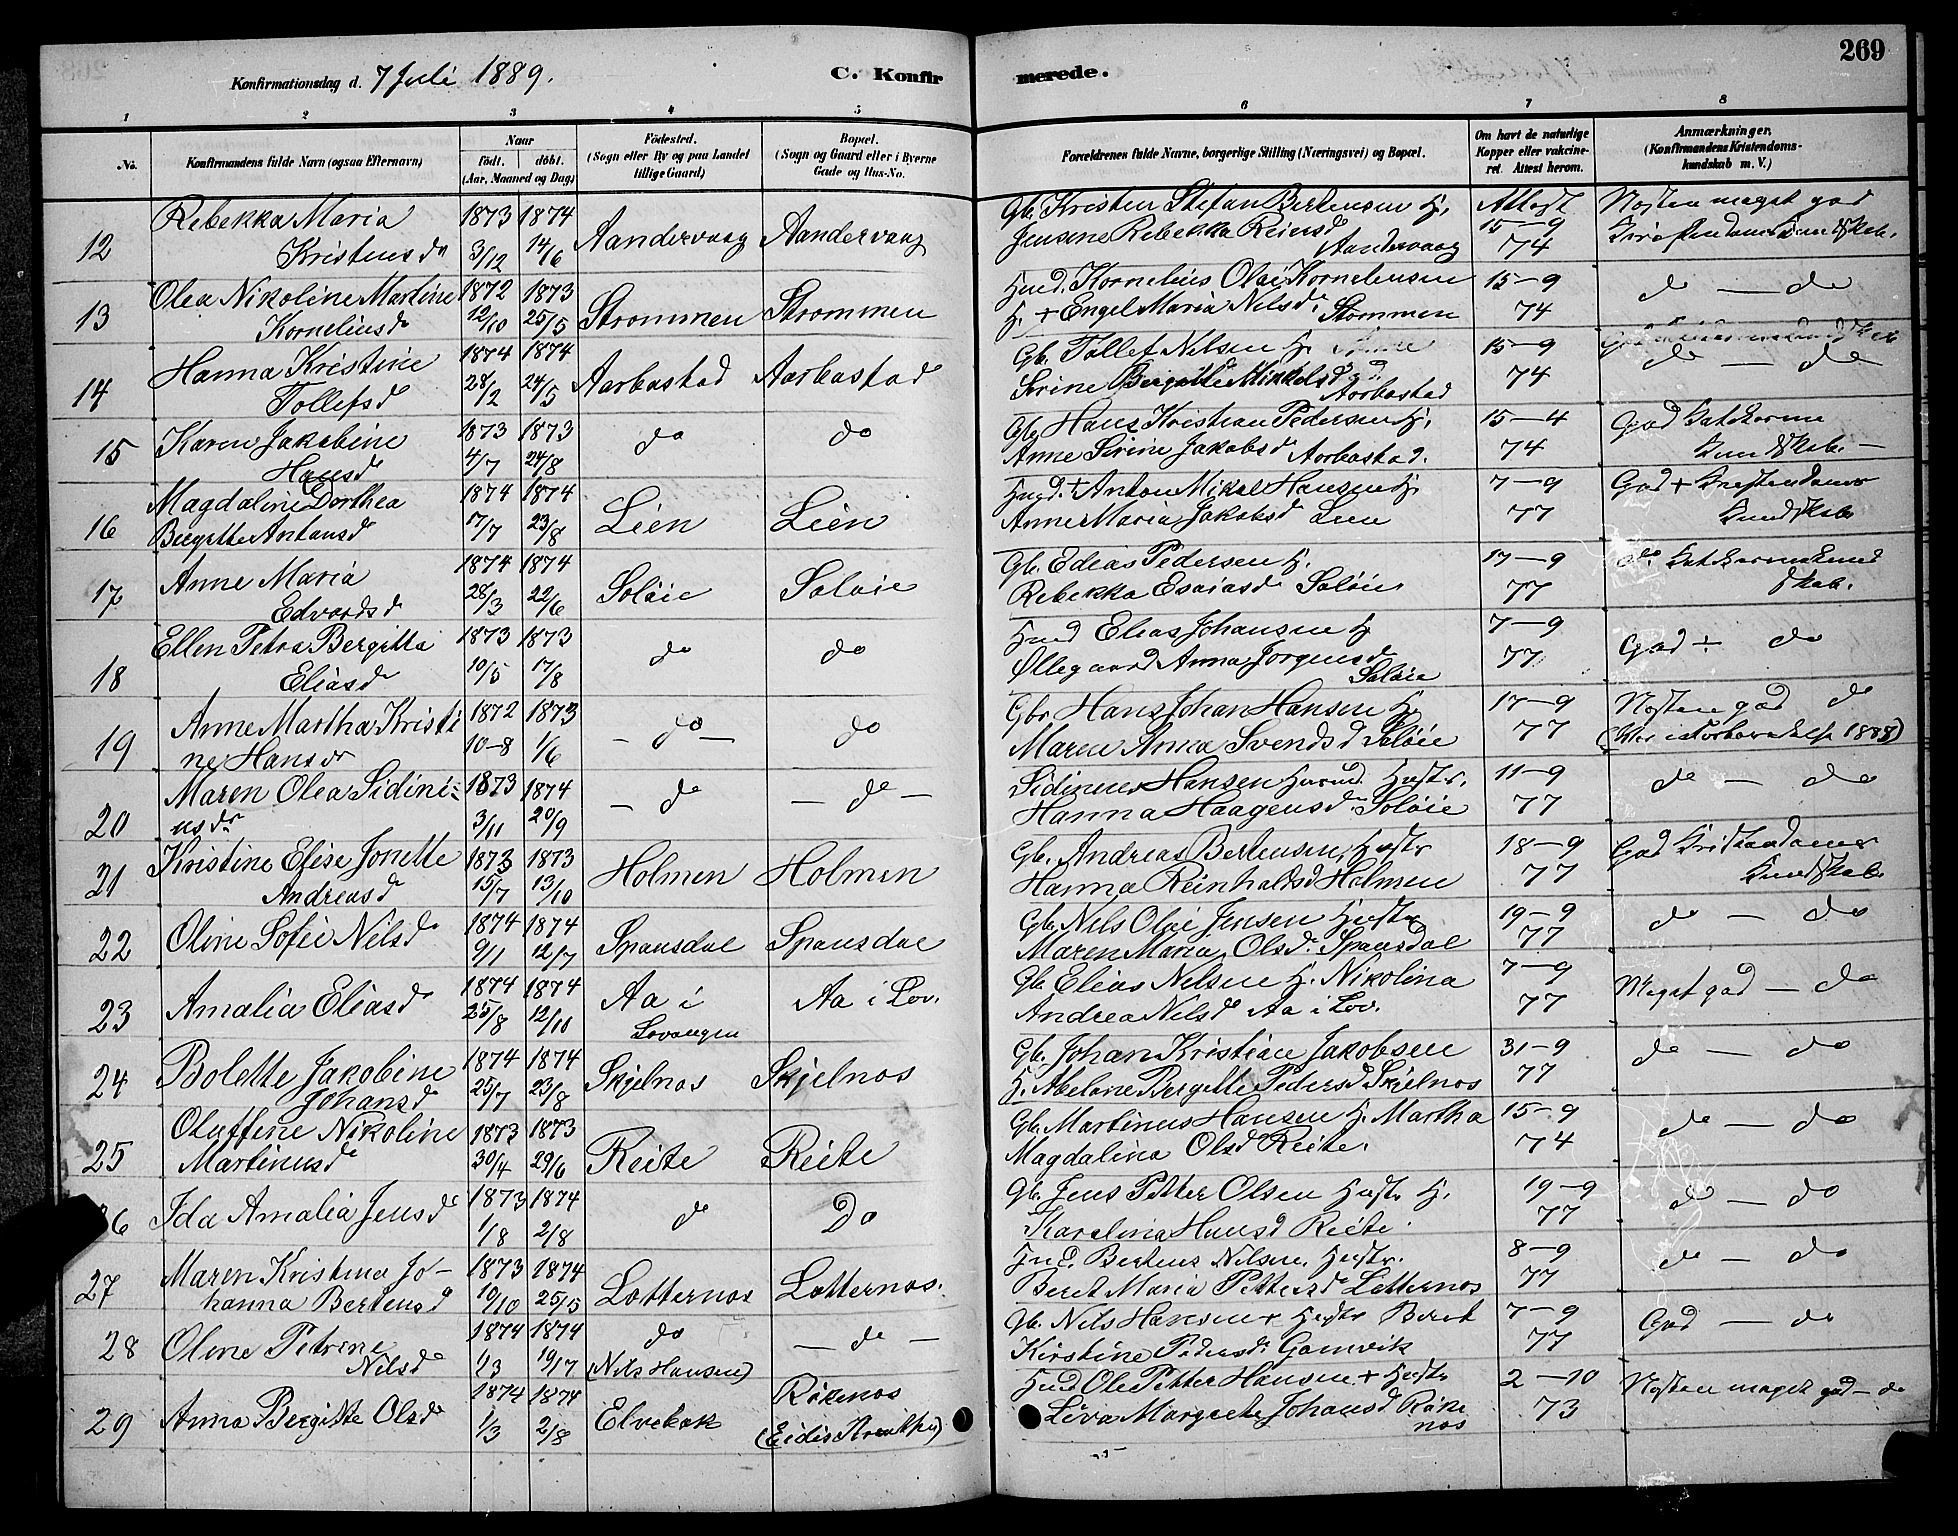 269
Konfirmationsdag d. 7 Juli 1889.
C. Konfirmerede.
1 2 3 4 5 6 7 8
No.
Konfirmandens fulde Navn (ogsaa Efternavn)
Naar
födt. döbt.
(Aar, Maaned og Dag)
Födested.
(Sogn eller By og paa Landet
tillige Gaard)
Bopæl.
(Sogn og Gaard eller i Byerne
Gade og Hus-No.
Forældrenes fulde Navne, borgerlige Stilling (Næringsvei) og Bopæl.
Om havt de naturlige
Kopper eller vakcine-
ret. Attest herom.
Anmærkninger,
(Konfirmandens Kristendoms-
kundskab m. V.)
Rebekka Maria 1873 1874 Gb. Kristen Stefan Bertensen H. Attest Nesten meget god
12 Kristensd 3/12 14/6 Aandervaag Aandervaag Jensine Rebekka Reinsd Aandervaag 15-9 74 Kristendomskundskab.
Olea Nikoline Martine 1872 1873 Hmd. Kornelius Olai Kornelensen 15-9
13 Korneliusd 12/10 25/5 Strommen Strommen H. + Engel Maria Nilsd. Strommen 74 do — do
Hanna Kristine 1874 1874 Gb. Tollef Nilsen H. 15-9
14 Tollefsd 28/2 24/5 Aarbastad Aarbastad Serine Bergitte Mikkelsd Aarbastad 74 do — do
Karen Jakobine 1873 1873 Gb. Hans Kristian Pedersen H. 15-4 God
15 Hansd 4/7 24/8 do do Anne Sirine Jakobsd Aarbastad. 74 Kundskab. —
Magdaline Dorthea 1874 1874 Hmd. + Anton Mikal Hansen H. 7-9 God + Kristendoms
16 Bergitte Antonsd 17/7 23/8 Lien Lien Anne Maria Jakobsd Lien 77 Kundskab
Anne Maria 1874 1874 Gb. Edias Pedersen H. 17-9
17 Edvardsd 28/3 22/6 Soløie Soløie Rebekka Esaiasd Soløie 77 skab.
Ellen Petra Bergitta 1873 1873 Hmd Elias Johansen H 7-9
18 Eliasd 10/5 17/8 do do Øllegaard Anna Jørgensd Soløie 77 God + do
Anne Martha Kristi 1872 1873 Gbr Hans Johan Hansen H. 17-9 Nesten god do
19 ne Hansdr 10-8 1/6 — do — do Maren Anna Svendsd Soløie 77
Maren Olea Sidini= 1873 1874 Sidinius Hansen Hustr. 11-9
20 usdr 3/11 20/9 — do — do — Hanna Haagensd Soløie 77 do — do
Kristine Elise Jonette 1873 1873 Gb. Andreas Bertensen, Hustr 18-9 God Kristendoms
21 Andreasd 15/7 13/10 Holmen Holmen Hanna Reinholdsd Holmen 77 Kundskab
22 Oline Sofie Nilsd 1874 1874 9/1 12/7 Spansdal Spansdal Gb. Nils Olai Jensen Hustr 19-9 do — do
Maren Maria Olsd. Spansdal 77
23 Amalia Eliasd 1874 1874 25/8 12/10 Aa i Lovangen Aa i Lov. Gb. Elias Nilsen H. Nikolina 7-9 Meget god — do
Andrea Nilsd Aa i Lov. 77
24 Bolette Jakobine 1874 1874 Skjelnos Skjelnos Gb. Johan Kristian Jakobsen 31-9 do — do
Johansd 25/7 23/8 H. Abelone Bergitte Pedersd Skjelnos 77
Oluffine Nikoline 1873 1873 Gb. Martinus Hansen H. Martha 15-9 do — do
25 Martinusd 30/4 29/6 Reite Reite Magdalina Olsd Reite. 74
26 Ida Amalia Jensd 1873 1874 1/8 2/8 do Do Gb. Jens Petter Olsen Hustr H. 19-9 do — do
Karelina Hansd Reite. 77
Maren Kristina Jo- 1873 1874 Hmd. Bertens Nilsen Hustr. 8-9 do — do
27 hanna Bertensd 10/10 25/5 Lotternos Lotternos. Beret Maria Pettersd Lotternos 77
28 Oline Petrine 1874 1874 do — do — Gb. Nils Hansen + Hustr Beret 7-9 God — do
Nilsd 1/3 19/7 (Nils Hansen) Kirstine Pedersd. Gamvik 77
1874 1874 Røkenos Hmd Ole Petter Hansen + Hustr 2-10 Nesten meget god — do
29 Anna Bergitte Olsd 1/3 2/8 Elvebak Liva Margrete Johansd Røkenos 73